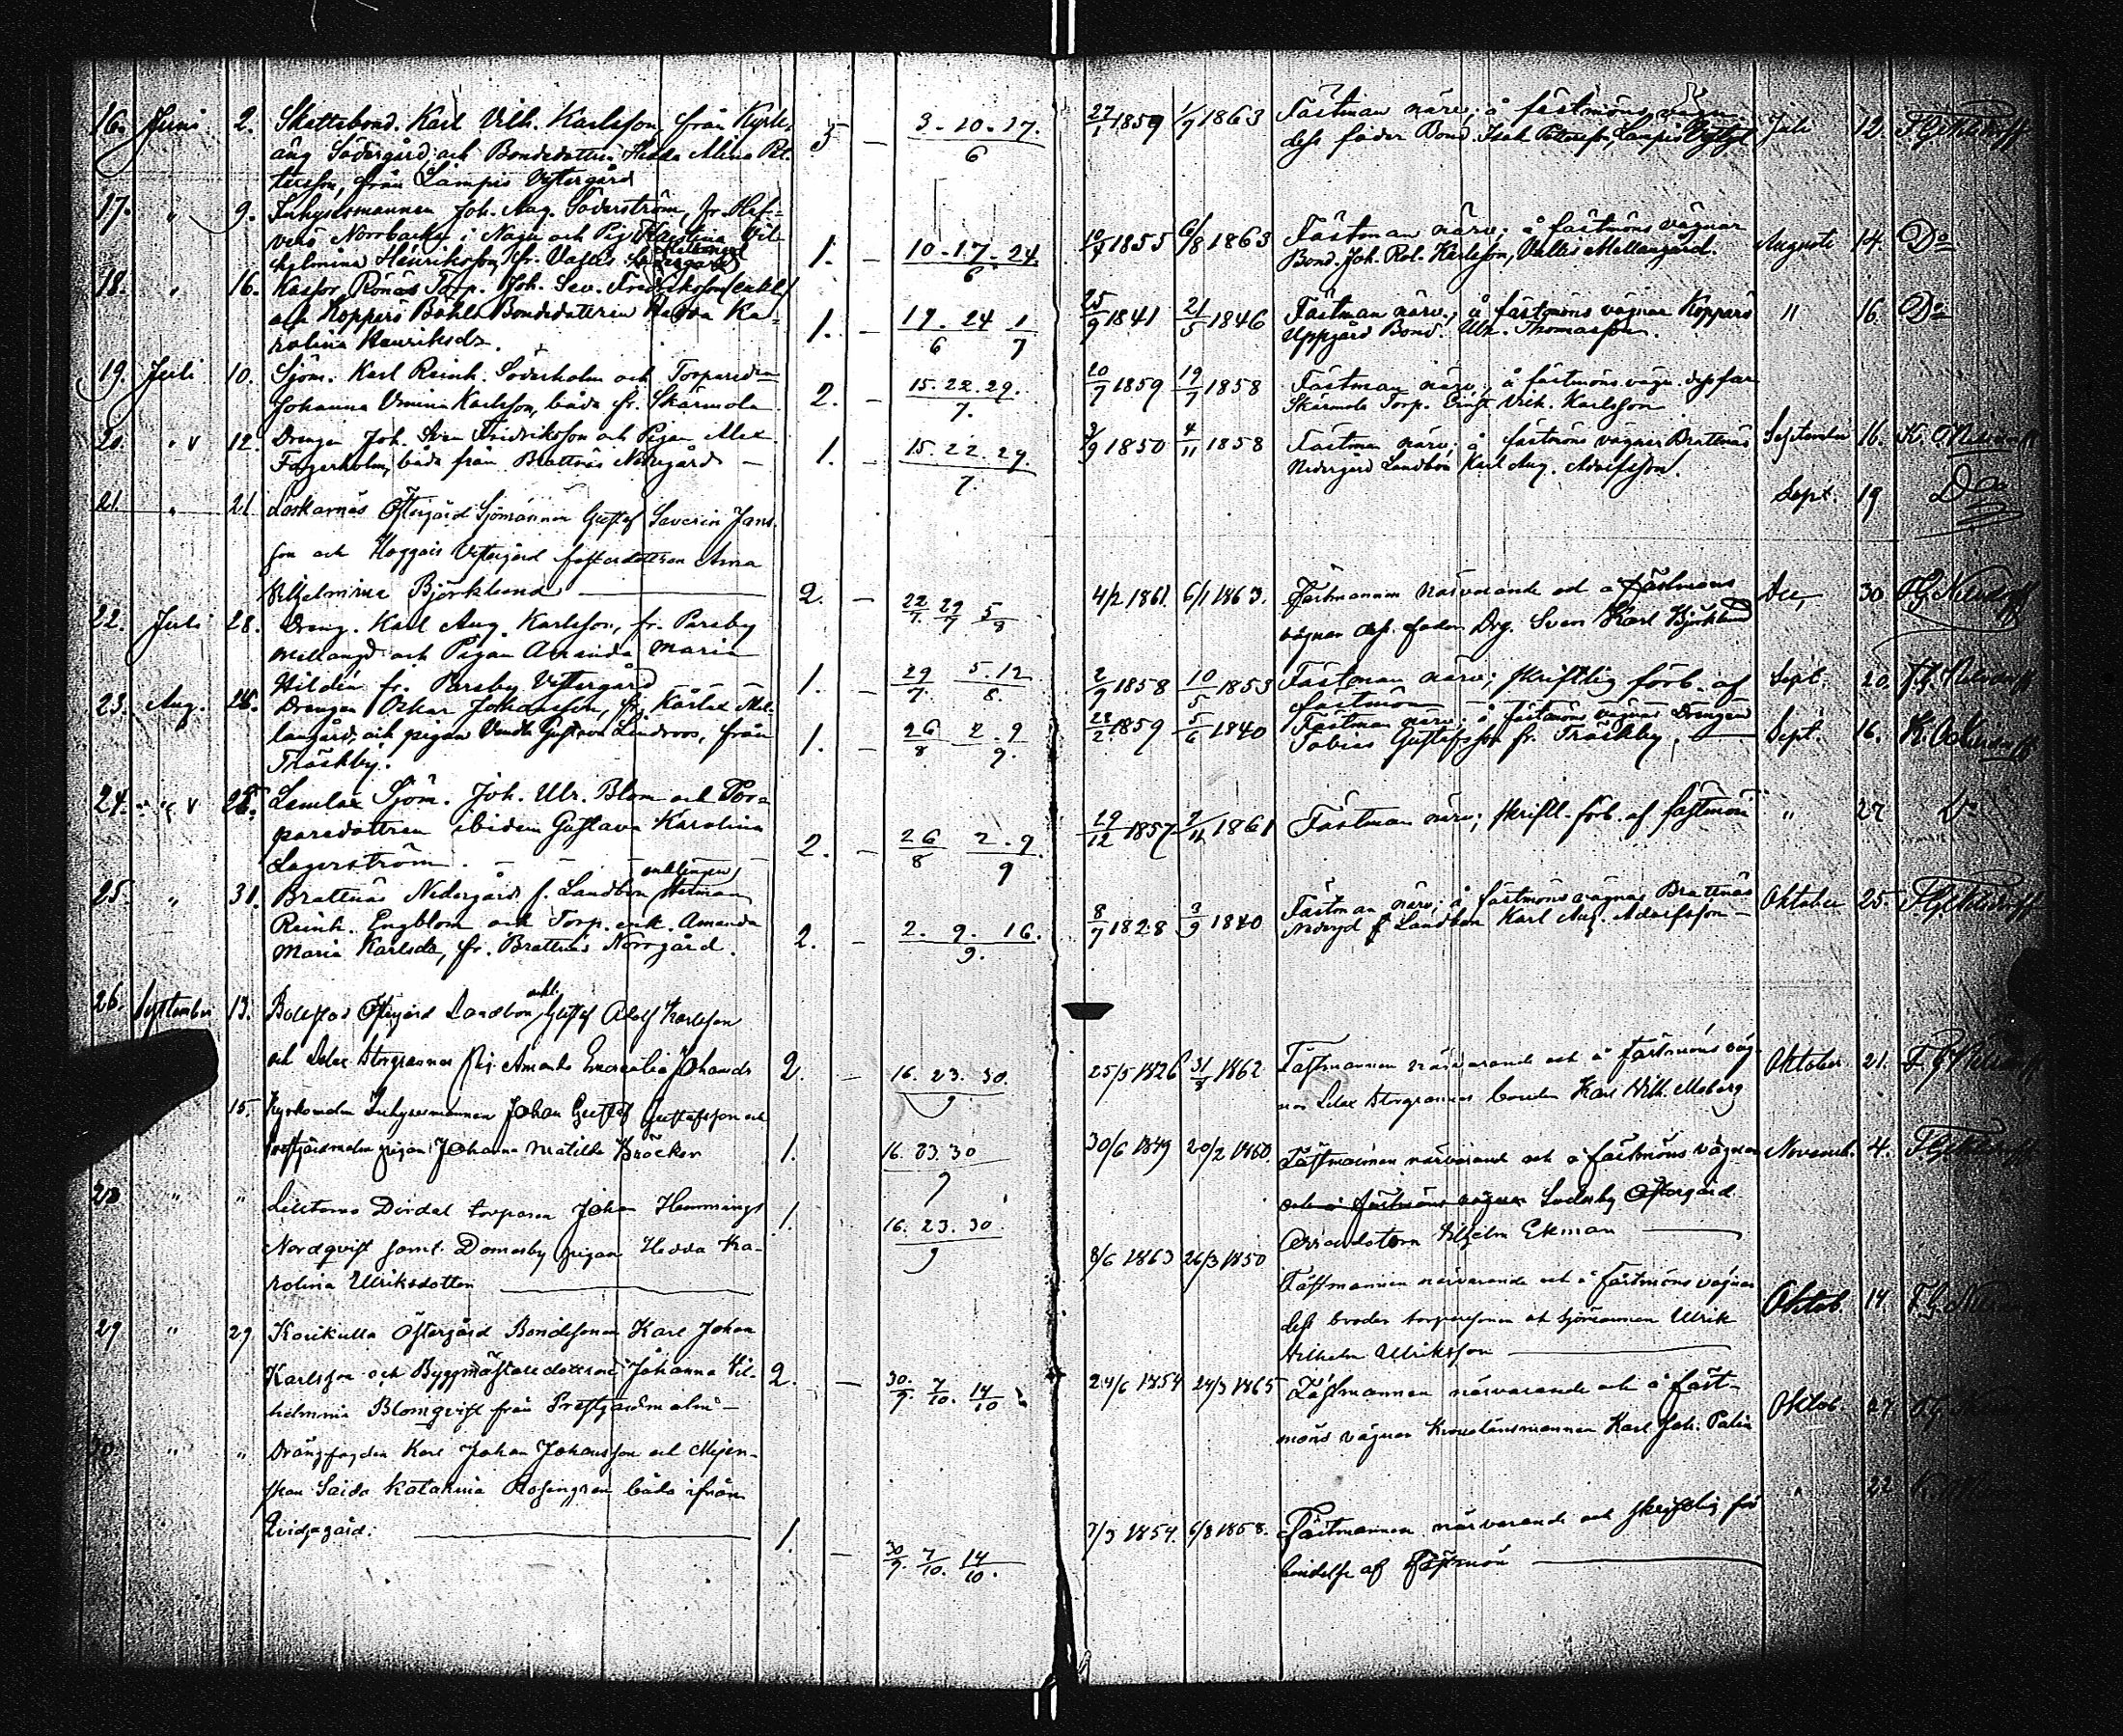 16. Juni 2. Skattebond. Karl Vilh. Karlsson, från Kyrk-
äng Södergård, och Bondedottern Hedda Alina Pet-
tersson, från Lampis Vestergård
5 — 3. 10. 17. / 6
17. " 9. Inhysesmannen Joh. Aug. Söderström, fr.
Norrbacka i Nagu och Pig. Kristina Vil-
helmina Henriksson, fr.
1. — 10. 17. 24. / 6
18. " 16. Rönäs Torp. Joh. Sev. Fredriksson (enkl.)
och Koppars Böhle Bondedottern Hedda Ka-
rolina Henriksdr.
1. — 17. 24 / 6 1 / 7
19. Juli 10. Sjöm. Karl Reinh. Söderholm och Torparedr.
Johanna Karlsson, båda fr. Skärmola
2. — 15. 22. 29. / 7.
20. " v 12. Drengen Joh. Fredriksson och Pigan Alex.
Fagerholm, båda från Brattnäs Nedregård —
1. — 15. 22. 29. / 7.
21. " 21. Laskarnäs Östergård Sjömannen Gustaf Severin Jans-
son och Haggais Vestergård fosterdottren Anna
Vilhelmina Björklund
2. — 22/7. 29/7 5/8
22. Juli 28. Dreng. Karl Aug. Karlsson, fr. Parsby
Mellangd och Pigan Amanda Maria
Hildén fr. Parsby Vestergård
1. — 29/7. 5. 12 / 8.
23. Aug. Drengen Oskar Johansson, fr. Kårlax Mel-
langård, och pigan Vendla Gustava Lindroos, från
Träskby.
1. — 26/8 2. 9 / 9.
24. " v Lemlax Sjöm. Joh. Ulr. Blom och Tor-
paredottren ibidem Gustava Karolina
Lagerström.
2. — 26/8 2. 9. / 9
25. " 31. Brattnäs Nedergård f. Landbon enklingen Herman
Reinh. Engblom och Torp. enk. Amanda
Maria Karlsdr, fr. Brattnäs Norrgård.
2. — 2. 9. 16. / 9.
26. September 13. Östergård Landbon enkl. Gustaf Adolf Karlsson
och Lelax Storgrannas Pig. Amanda Johansdr
2. — 16. 23. 30. / 9
15. Kyrkomalm Inhysesmannen Johan Gustaf Gustafsson och
Prestgårdsmalm pigan Johanna Matilda Bröcker
1. 16. 23. 30 / 9
28 " " Lilltervo Dirdal torparen Johan Hemmings
Nordqvist samt. Domarby pigan Hedda Ka-
rolina Ulriksdotter
1. 16. 23. 30. / 9
29 " 29 Korikulla Östergård Bondesonen Karl Johan
Karlsson och Byggmästaredottren Johanna Vil-
helmina Blomqvist från Prestgårdsmalm —
2. — 30./9. 7/10. 14/10
30. " " Drängfogden Karl Johan Johansson och Mejer-
skan Saida Katarina Rosengren båda ifrån
Qvidjagård.
1. — 30/9. 7/10. 14/10.
27/1 1859 1/7 1863 Fästman närv; å fästmöns vägn.
dess fader Bond. Isak Petersson, Lampis Vestergd
Juli 12.
10/7 1855 6/8 1863 Fästman närv; å fästmöns vägnar
Bond. Joh. Rob. Karlsson, Mellangård.
Augusti 14. Do
25/9 1841 21/5 1846 Fästman närv; å fästmöns vägnar Koppars
Uppgård Bond. Ulr. Thomasson.
" 16 Do
20/7 1859 19/7 1858 Fästman närv; å fästmöns vägn. dess far
Skärmola Torp. Ernst Vilh. Karlsson
3/9 1850 4/11 1858 Fästman närv; å fästmöns vägnar Brattnäs
Nedergård Landbon Karl Aug. Adolfsson.
September 16.
Sept. 19 Do
4/2 1861. 6/1 1863. Fästmannen närvarande och å fästmöns
vägnar dess fader Drg. Sven Karl Björklund
Dec, 30
2/9 1858 10/5 1853 Fästman närv; skriftlig förb. af
fästmön
Sept. 20.
28/2 1859 5/6 1840 Fästman närv; å fästmöns vägnar Drengen
Tobias Gustafsson fr. Träskby.
Sept. 16.
29/12 1857 2/11 1861 Fästman närv; skriftl. förb. af fästmön
" 27 Do
8/7 1828 3/9 1840 Fästman närv; å fästmöns vägnar Brattnäs
Nedergd f. Landbon Karl Aug. Adolfsson —
Oktober 25
25/5 1826 31/3 1862 Fästmannen närvarande och å fästmöns väg-
nar Lelax Storgrannas bonden Karl Vilh. Moberg
Oktober 21.
30/6 1849 20/2 1860. Fästmannen närvarande och å fästmöns vägnar
och å fästmöns vägnar Östergård
Vilhelm Ekman
Novemb. 4.
8/6 1863 26/3 1850 Fästmannen närvarande och å fästmöns vägnar
dess broder torparesonen och sjömannen Ulrik
Vilhelm Ulriksson
Oktob 14
24/6 1854 24/3 1865 Fästmannen närvarande och å fäst-
möns vägnar Kronolänsmannen Karl Joh. Palin
Oktob. 27
7/3 1854. 6/8 1858. Fästmannen närvarande och skriftlig för-
bindelse af fästmön
" 22